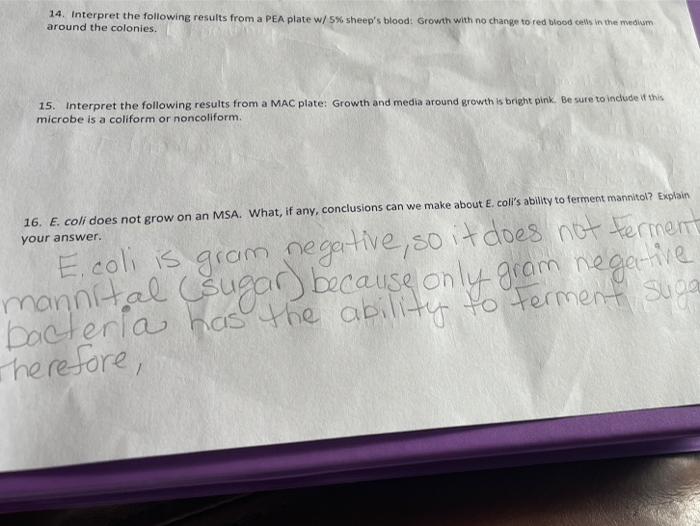 14. Interpret the following results from a PEA plate w/ 5% sheep's blood: Growth with no change to red blood cells in the medium
around the colonies.
15. Interpret the following results from a MAC plate: Growth and media around growth is bright pink. Be sure to include if this
microbe is a coliform or noncoliform.
16. E. coli does not grow on an MSA. What, if any, conclusions can we make about E. coli's ability to ferment mannitol? Explain
your answer.
E. coli is gram negative, so it does not ferment
mannital (sugar) because only gram negative
bacteria has the ability to ferment suga
Therefore,